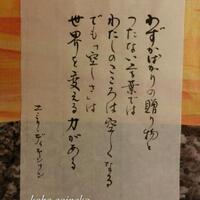 わずかばかりの贈り物と
つたない言葉では
わたしのこころは空しくなる
でも「空しさ」は
世界を変える力がある
エミリ・ディキンソン